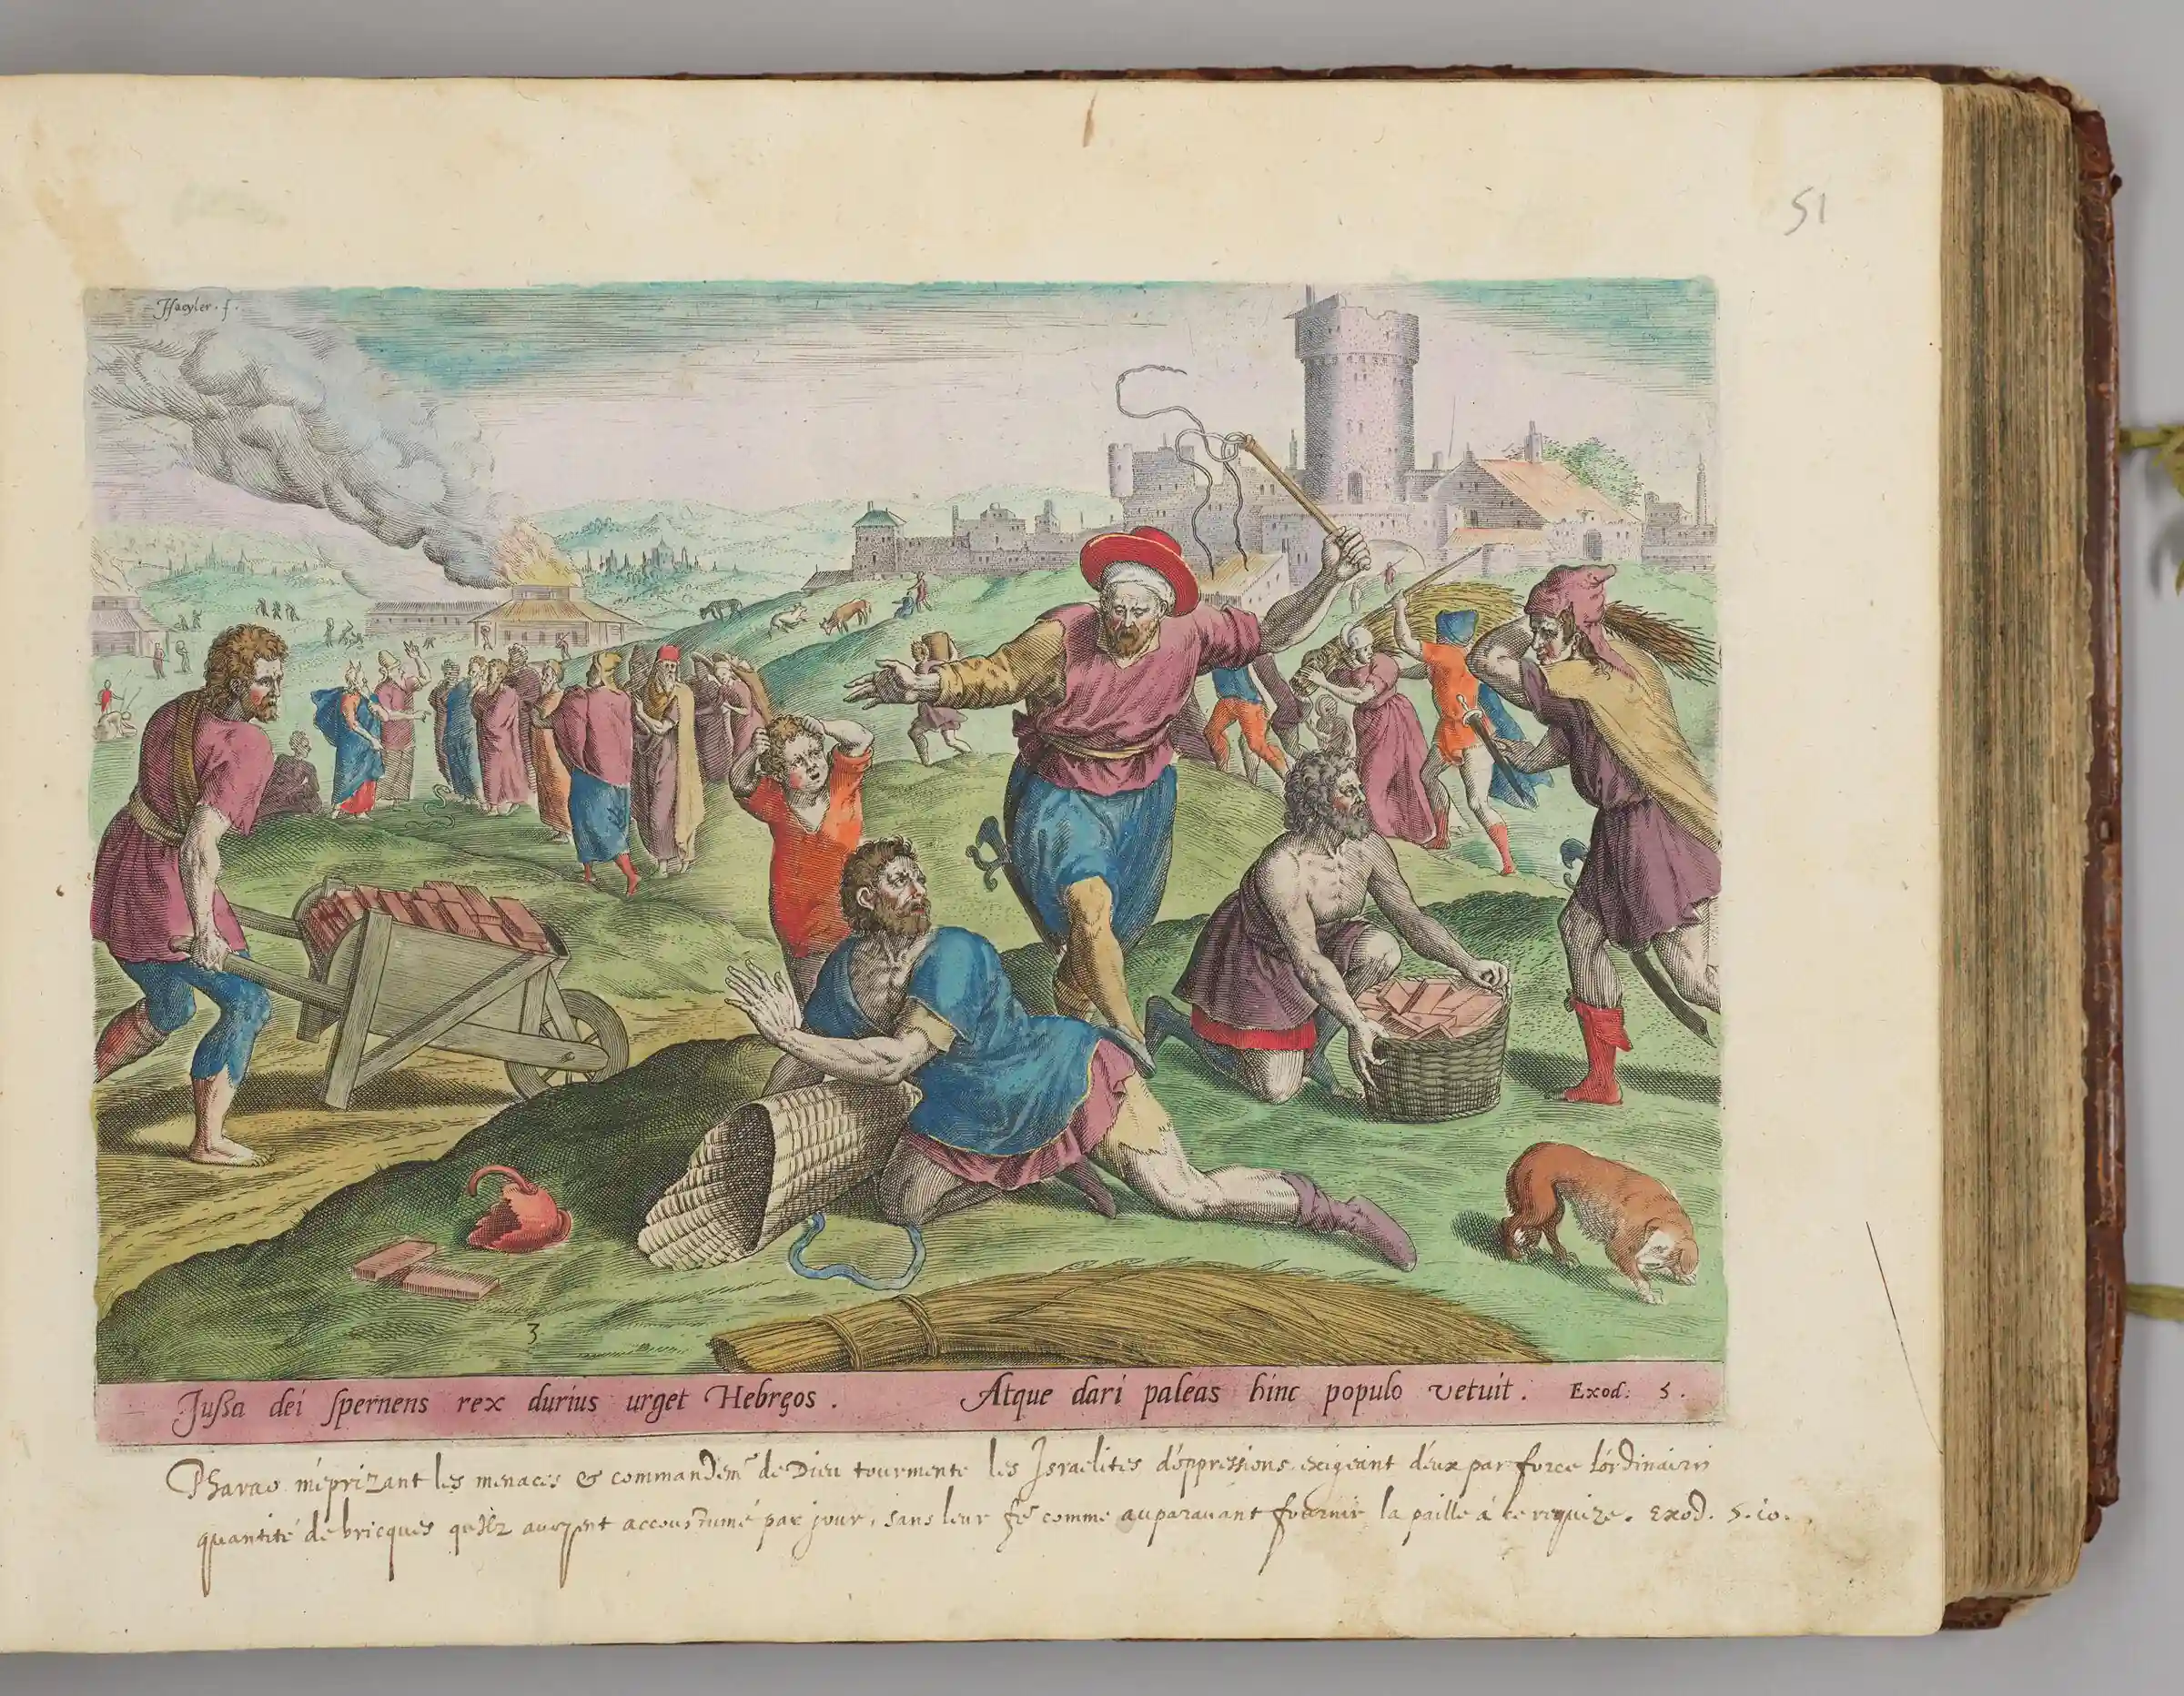 51
Hseyler. f.
3
Jussa dei spernens rex durius urget Hebręos. Atque dari paleas hinc populo vetuit. Exod: 5.
Pharao méprizant les menaces & commandemt de Dieu tourmente les Israelites d'oppressions exigeant d'eux par force l'ordinaire
quantité de bricques qu'ilz auoyent accoustumé par jour, sans leur comme auparauant fournir la paille á ce requize. Exod. 5. 10.